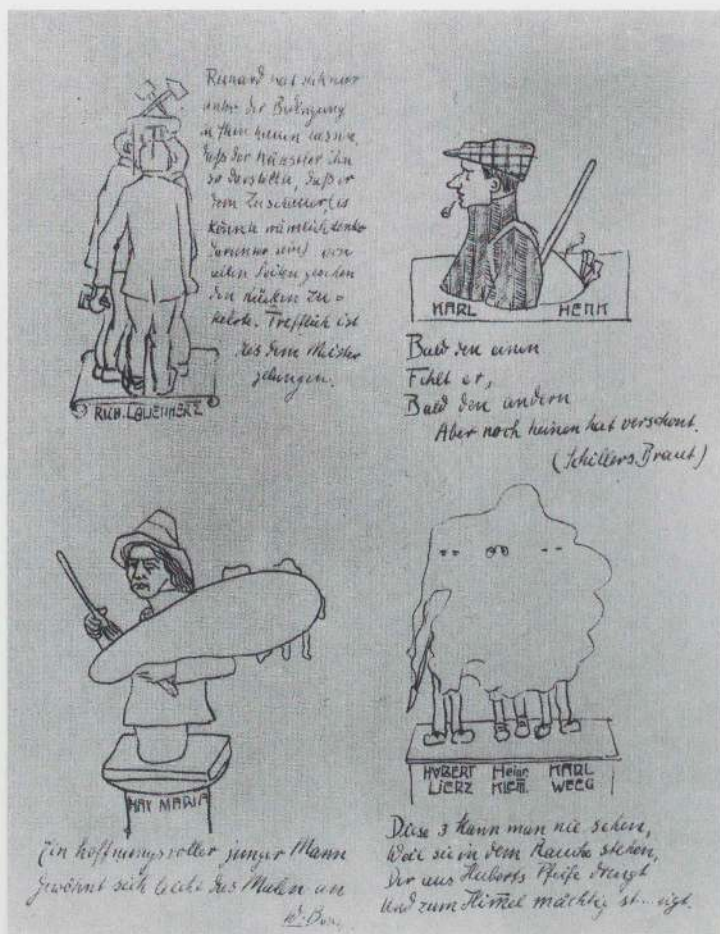 Richard hat sich nur
unter der Bedingung
in Stein hauen lassen,
daß der Künstler ihn
so darstelle, daß er
dem Zuschauer, (es
könnten nämlich
darunter sein) von
allen Seiten gesehen
den Rücken zu=
kehrte. Trefflich ist
das dem Meister
gelungen.
RICH. LAUENHERZ
KARL HENK
Bald den einen
Fehlt er,
Bald den andern
Aber noch keinen hat verschont.
(Schillers Braut)
MAX MARIA
Ein hoffnungsvoller junger Mann
gewöhnt sich leicht das Malen an
W. Bu
HUBERT Heinr. KARL
LIERZ KLEM. WEEG
Diese 3 kann man nie sehen,
Weil sie in dem Rauche stehen,
Der aus Huberts Pfeife drengt
Und zum Himmel mächtig